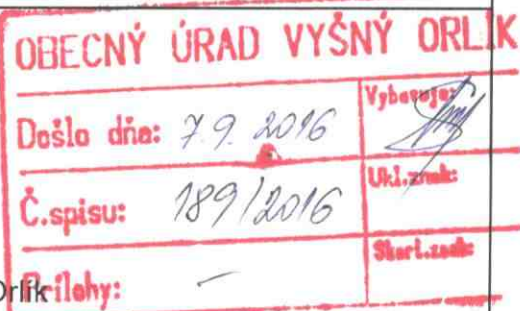 OBECNÝ ÚRAD VYŠNÝ ORLÍK
Došlo dňa: 7.9.2016
Vybavuje:
Č.spisu: 189/2016
Ukl.znak:
Prílohy: –
Skart.znak:
Orlík